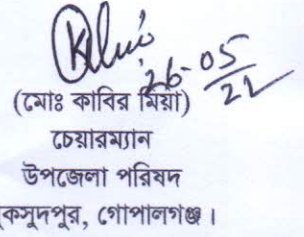 26-05
22
(মোঃ কাবির মিয়া)
চেয়ারম্যান
উপজেলা পরিষদ
কসুদপুর, গোপালগঞ্জ।